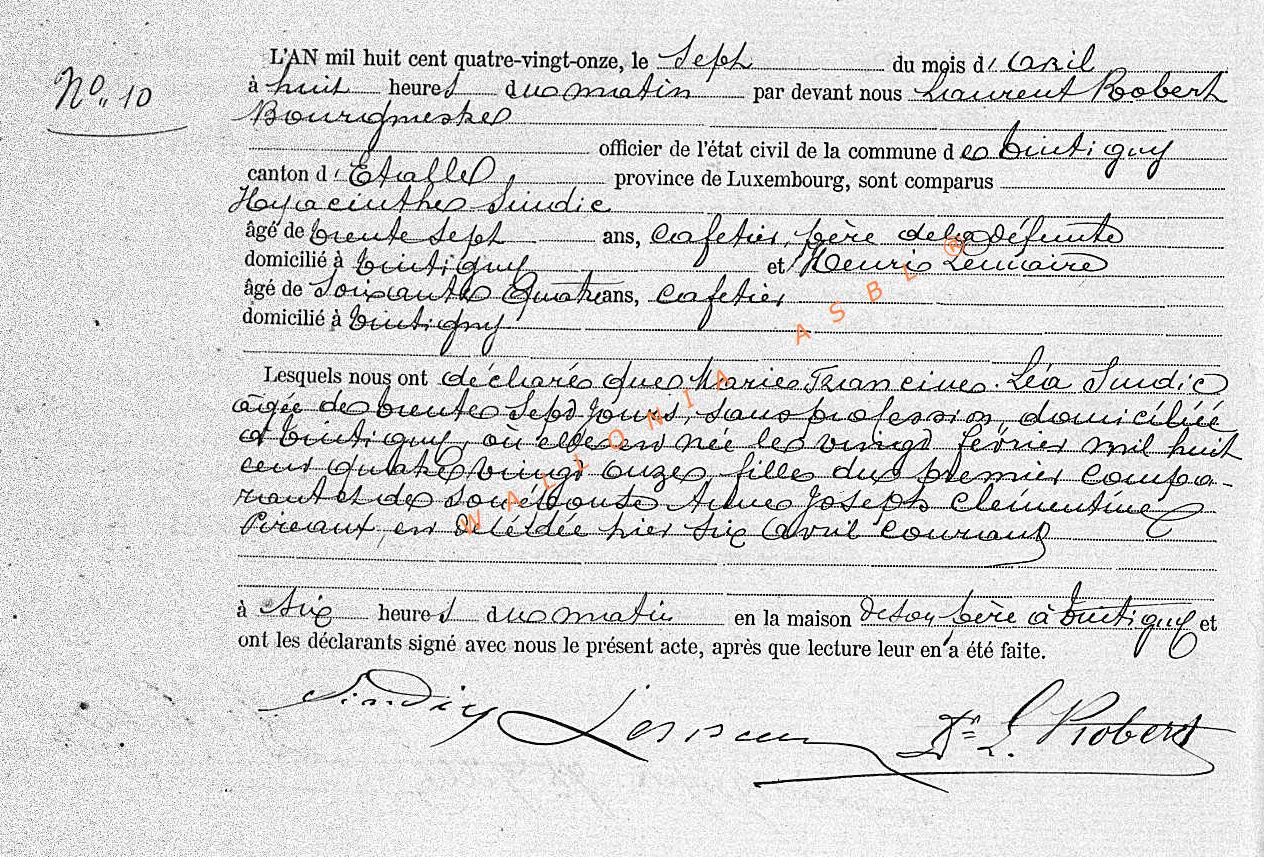 L'AN mil huit cent quatre-vingt-onze, le Sept du mois d' Avril
No. 10
à huit heures du matin par devant nous Laurent Robert
Bourgmestre
officier de l'état civil de la commune de Tintigny
canton d' Etalle, province de Luxembourg, sont comparus
Hyacinthe Sindic
âgé de trente sept ans, cafetier, père de la défunte
domicilié à Tintigny et Henri Lemaire
âgé de Soixante Quatre ans, cafetier
domicilié à Tintigny
Lesquels nous ont déclaré que Marie Francine Léa Sindic
âgée de trente Sept jours, sans profession, domiciliée
à Tintigny, où elle est née le vingt février mil huit
cent quatre vingt onze fille du premier compa-
rant et de son épouse Anne Joseph Clémentine
est décédée hier six avril courant
à six heures du matin en la maison de son père à Tintigny et
ont les déclarants signé avec nous le présent acte, après que lecture leur en a été faite.
Sindic Dr. L. Robert
WALLONIA ASBL ®